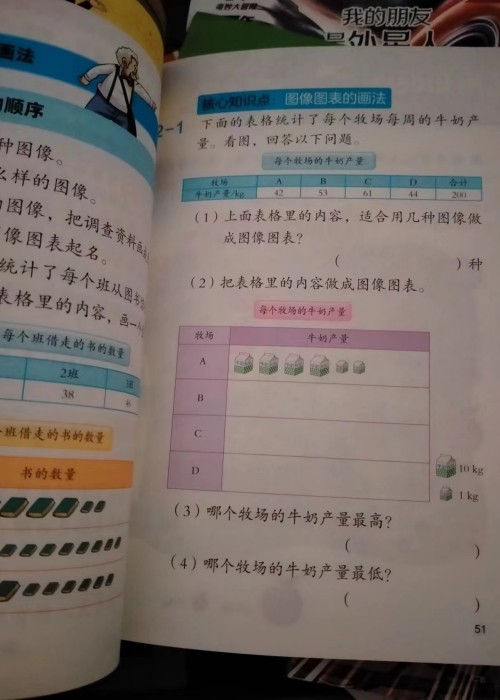 我的朋友
是外星人
画法
顺序
种图像。
么样的图像。
图像，把调查资料画
像图表起名。
统计了每个班从图书
表格里的内容，画一个
每个班借走的书的数量
2班
38
班借走的书的数量
书的数量
核心知识点 图像图表的画法
2-1 下面的表格统计了每个牧场每周的牛奶产
量。看图，回答以下问题。
每个牧场的牛奶产量
牧场 A B C D 合计
牛奶产量/kg 42 53 61 44 200
(1) 上面表格里的内容，适合用几种图像做
成图像图表？
( ) 种
(2) 把表格里的内容做成图像图表。
每个牧场的牛奶产量
牧场 牛奶产量
A
B
C
D
10 kg
1 kg
(3) 哪个牧场的牛奶产量最高？
( )
(4) 哪个牧场的牛奶产量最低？
( )
51